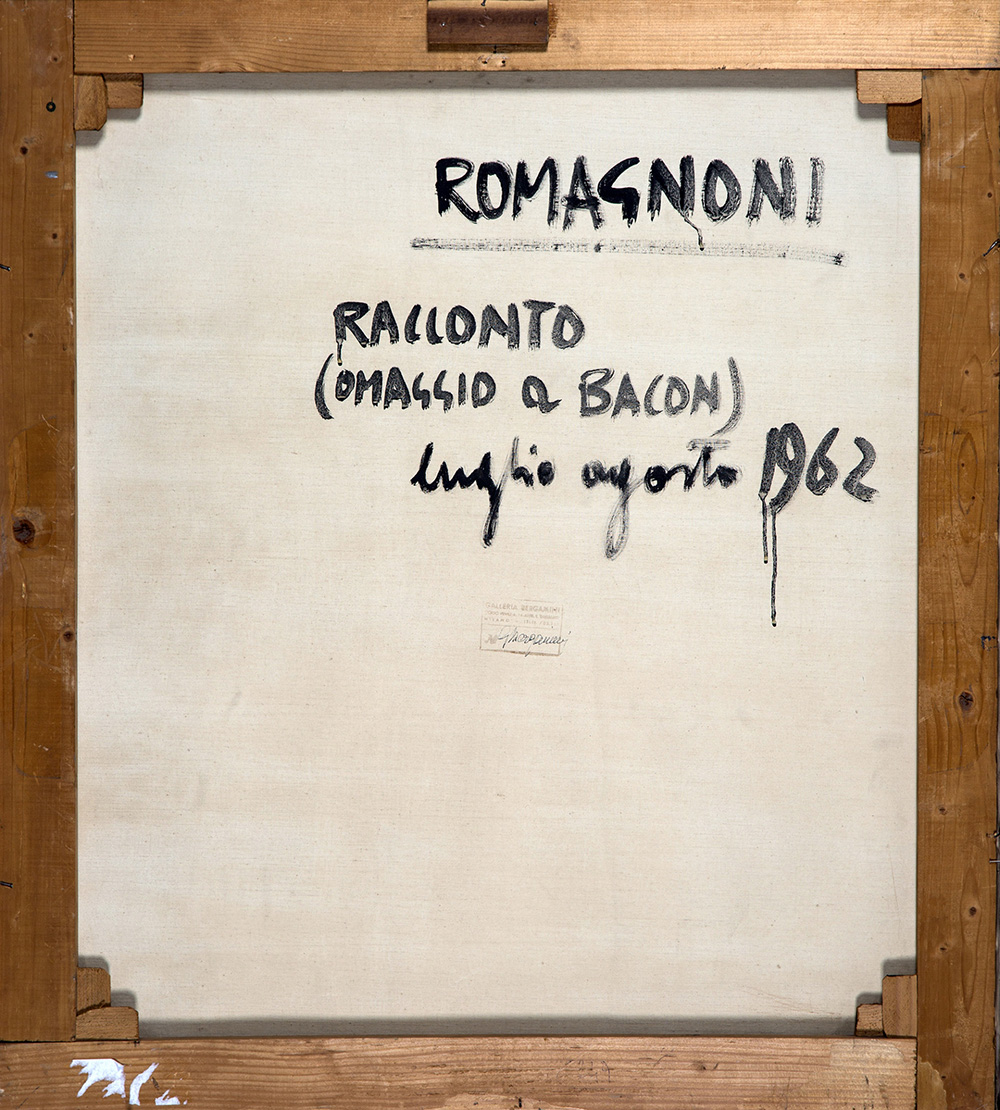 ROMAGNONI
RACCONTO
(OMAGGIO a BACON)
luglio agosto 1962
GALLERIA BERGAMINI